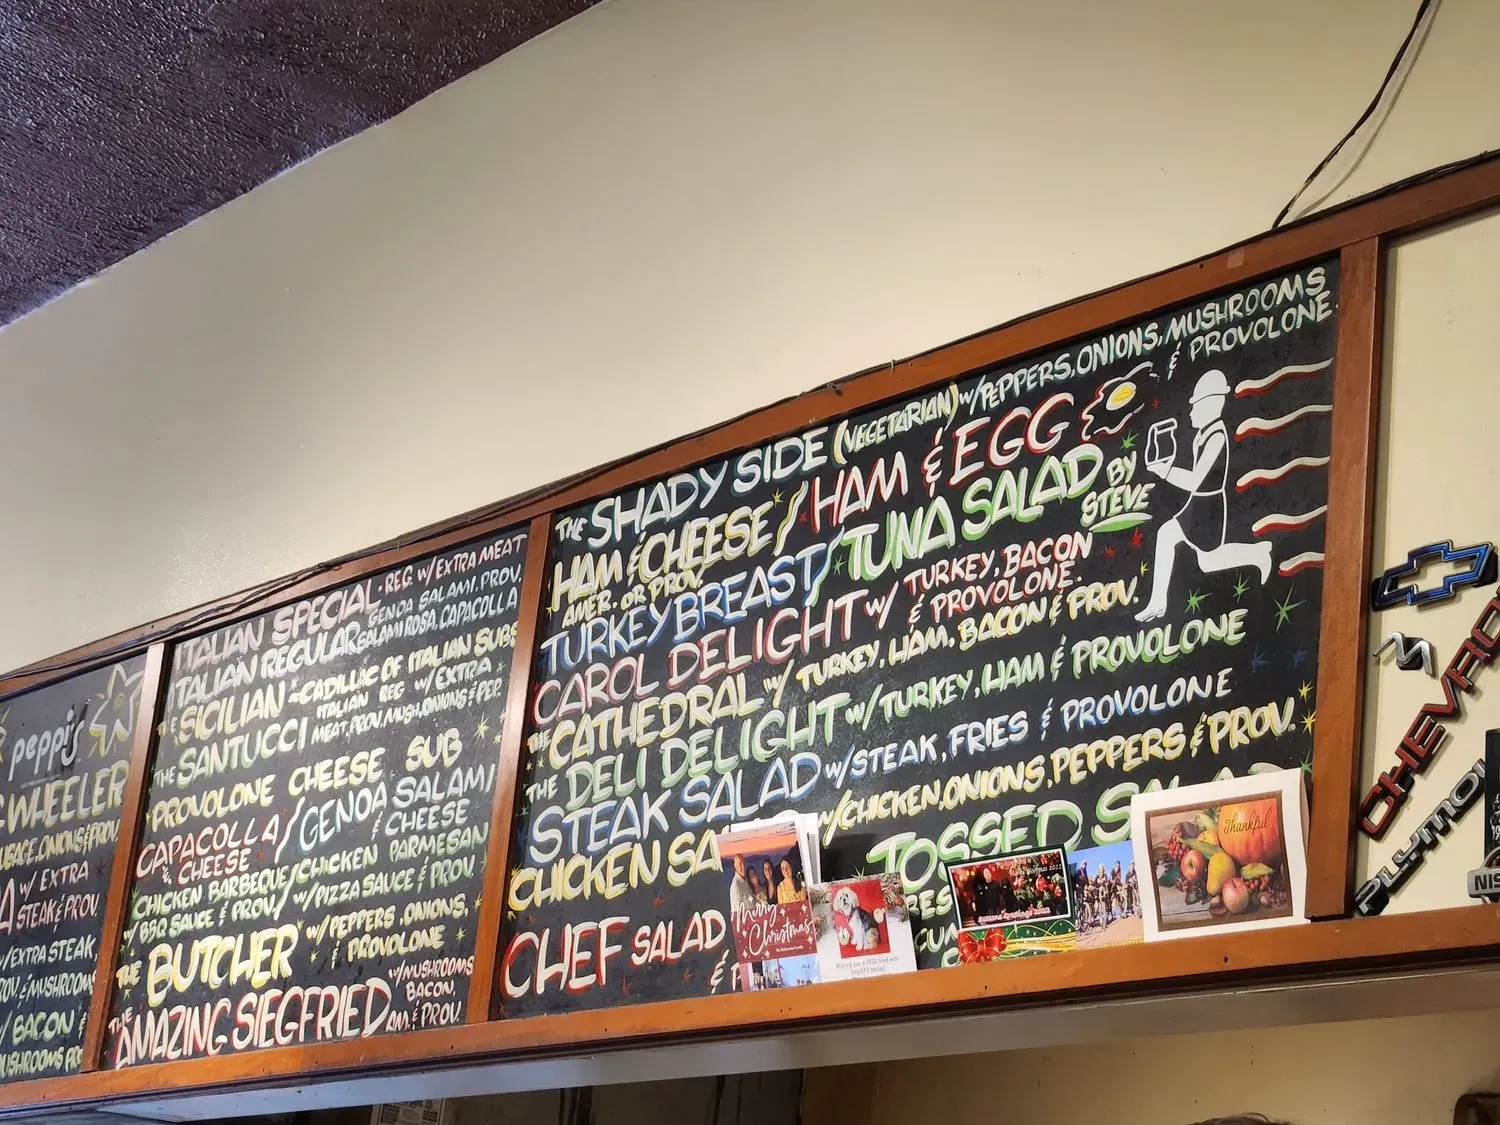 peppi's
WHEELER
ONIONS & PROV.
W/ EXTRA
STEAK & PROV.
W/ EXTRA STEAK,
& MUSHROOM
W/ BACON &
MUSHROOMS
ITALIAN SPECIAL - REG. W/ EXTRA MEAT
ITALIAN REGULAR GENOA SALAMI, PROV.
SALAMI ROSA, CAPACOLLA
THE SICILIAN = CADILLAC OF ITALIAN SUBS
THE SANTUCCI ITALIAN REG. W/ EXTRA
MEAT, PROV, MUSH, ONIONS & PEP.
PROVOLONE CHEESE SUB
CAPACOLLA & CHEESE / GENOA SALAMI & CHEESE
CHICKEN BARBEQUE / CHICKEN PARMESAN
W/ BBQ SAUCE & PROV. / W/ PIZZA SAUCE & PROV.
THE BUTCHER W/ PEPPERS, ONIONS,
& PROVOLONE
THE AMAZING SIEGFRIED W/ MUSHROOMS
BACON,
AM. & PROV.
THE SHADY SIDE (VEGETARIAN) W/ PEPPERS, ONIONS, MUSHROOMS
& PROVOLONE
HAM & CHEESE / HAM & EGG
AMER. OR PROV.
TURKEY BREAST / TUNA SALAD BY
STEVE
CAROL DELIGHT W/ TURKEY, BACON
& PROVOLONE.
THE CATHEDRAL W/ TURKEY, HAM, BACON & PROV.
THE DELI DELIGHT W/ TURKEY, HAM & PROVOLONE
STEAK SALAD W/ STEAK, FRIES & PROVOLONE
CHICKEN SA W/ CHICKEN, ONIONS, PEPPERS & PROV.
TOSSED
CHEF SALAD
&
Merry
Christmas
Thankful
CHEVRO
PLYMO
NIS